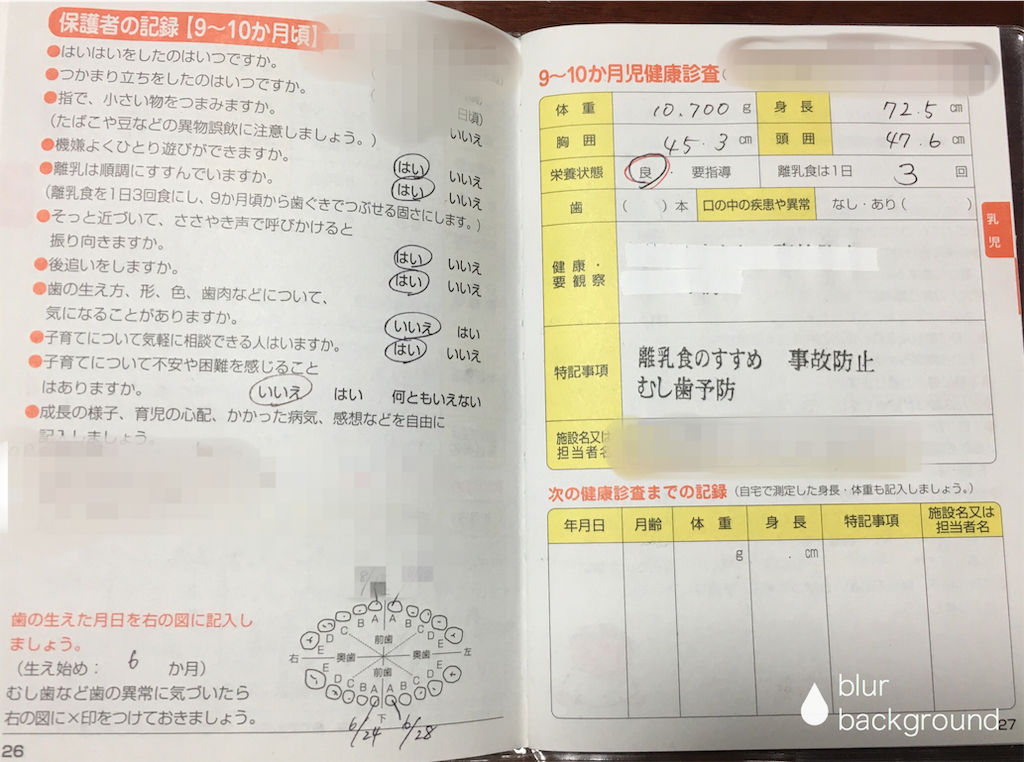 保護者の記録【9～10か月頃】
●はいはいをしたのはいつですか。
●つかまり立ちをしたのはいつですか。
●指で、小さい物をつまみますか。
(たばこや豆などの異物誤飲に注意しましょう。)
日頃)
いいえ
●機嫌よくひとり遊びができますか。
はい いいえ
●離乳は順調にすすんでいますか。
はい いいえ
(離乳食を1日3回食にし、9か月頃から歯ぐきでつぶせる固さにします。)
●そっと近づいて、ささやき声で呼びかけると
振り向きますか。
はい いいえ
●後追いをしますか。
はい いいえ
●歯の生え方、形、色、歯肉などについて、
気になることがありますか。
いいえ はい
●子育てについて気軽に相談できる人はいますか。
はい いいえ
●子育てについて不安や困難を感じること
はありますか。 いいえ はい 何ともいえない
●成長の様子、育児の心配、かかった病気、感想などを自由に
記入しましょう。
歯の生えた月日を右の図に記入し
ましょう。
(生え始め: 6 か月)
むし歯など歯の異常に気づいたら
右の図に×印をつけておきましょう。
上
B A A B
C C
D D
E 前歯 E
右 奥歯 奥歯 左
E 前歯 E
D D
C C
B A A B
下
6/24 6/28
26
9～10か月児健康診査(
体重 10.700 g 身長 72.5 cm
胸囲 45.3 cm 頭囲 47.6 cm
栄養状態 良・要指導 離乳食は1日 3 回
歯 ( )本 口の中の疾患や異常 なし・あり( )
健康・
要観察
特記事項 離乳食のすすめ 事故防止
むし歯予防
施設名又は
担当者名
次の健康診査までの記録 (自宅で測定した身長・体重も記入しましょう。)
年月日 月齢 体重 身長 特記事項 施設名又は
担当者名
g . cm
乳児
blur
background
27